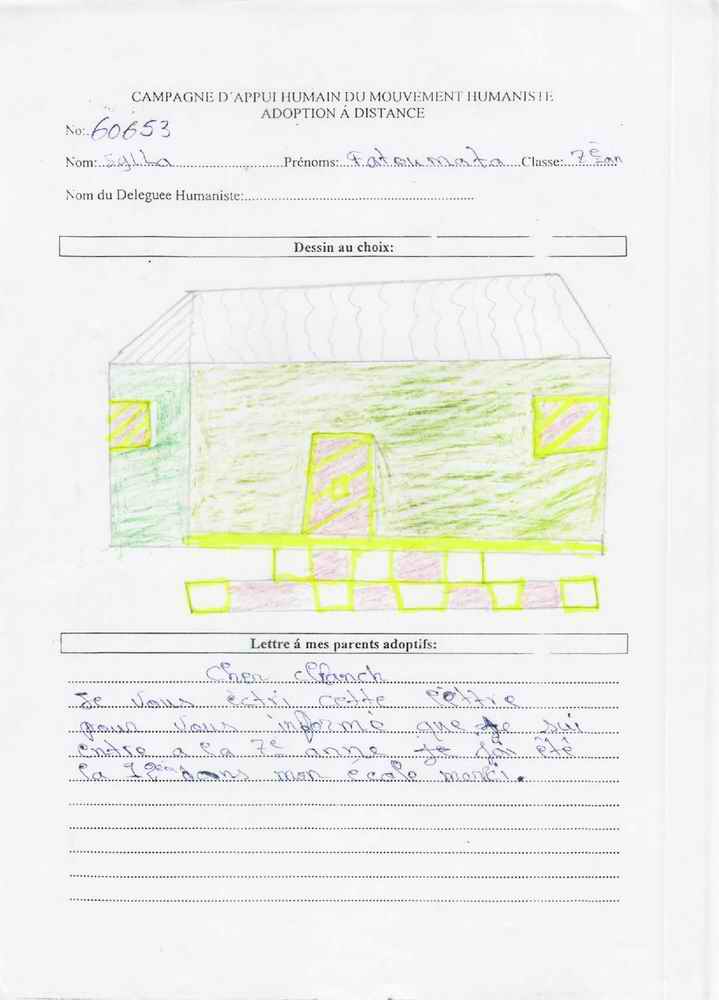 CAMPAGNE D'APPUI HUMAIN DU MOUVEMENT HUMANISTE
ADOPTION Á DISTANCE
No:.60653
Nom: Sylla Prénoms: Fatoumata Classe: 7è an
Nom du Deleguee Humaniste:
Dessin au choix:
Lettre á mes parents adoptifs:
Cher
Je vous èctri cette lettre
pour vous informé que je sui
entre a la 7e anne je jai été
la dans mon école merci.